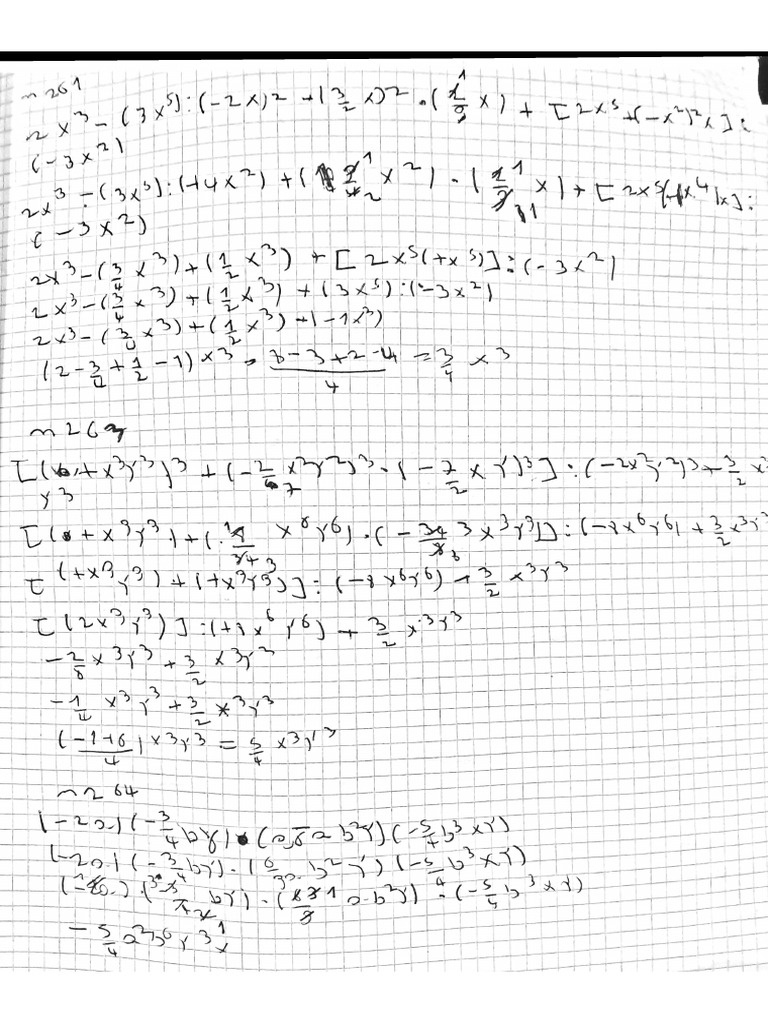 n 261
2x³ - (3x⁵) : (-2x)² + (3/2 x)² · (2/9 x) + [2x⁵ + (-x²)²x] :
(-3x²)
2x³ - (3x⁵) : (+4x²) + ( x²) · ( x) + [2x⁵ (+x⁴)x] :
(-3x²)
2x³ - (3/4 x³) + (1/2 x³) + [2x⁵ (+x⁵)] : (-3x²)
2x³ - (3/4 x³) + (1/2 x³) + (3x⁵) : (-3x²)
2x³ - (3/4 x³) + (1/2 x³) + (-1x³)
(2 - 3/4 + 1/2 - 1) x³ = (8 - 3 + 2 - 4)/4 = 3/4 x³
n 262
[( + x³y³)³ + (-2/7 x²y²)³ · (-7/2 x y)³] : (-2x²y²)³ + 3/2 x³
y³
[( + x⁹y⁹) + ( x⁶y⁶) · (- x³y³)] : (-8x⁶y⁶) + 3/2 x³y³
[(+x⁹y⁹) + (+x⁹y⁹)] : (-8x⁶y⁶) + 3/2 x³y³
[(2x⁹y⁹)] : (+8x⁶y⁶) + 3/2 x³y³
-2/8 x³y³ + 3/2 x³y³
-1/4 x³y³ + 3/2 x³y³
(-1+6)/4 x³y³ = 5/4 x³y³
n 264
(-2a) (-3/4 by) · (0,6 a b²y) (-5/4 b³xy)
(-2a) (-3/4 by) · (6/ a b² y) (-5/4 b³xy)
( a) ( by) · ( a b²y) · (-5/ b³xy)
-5/4 a²b⁶y³x¹